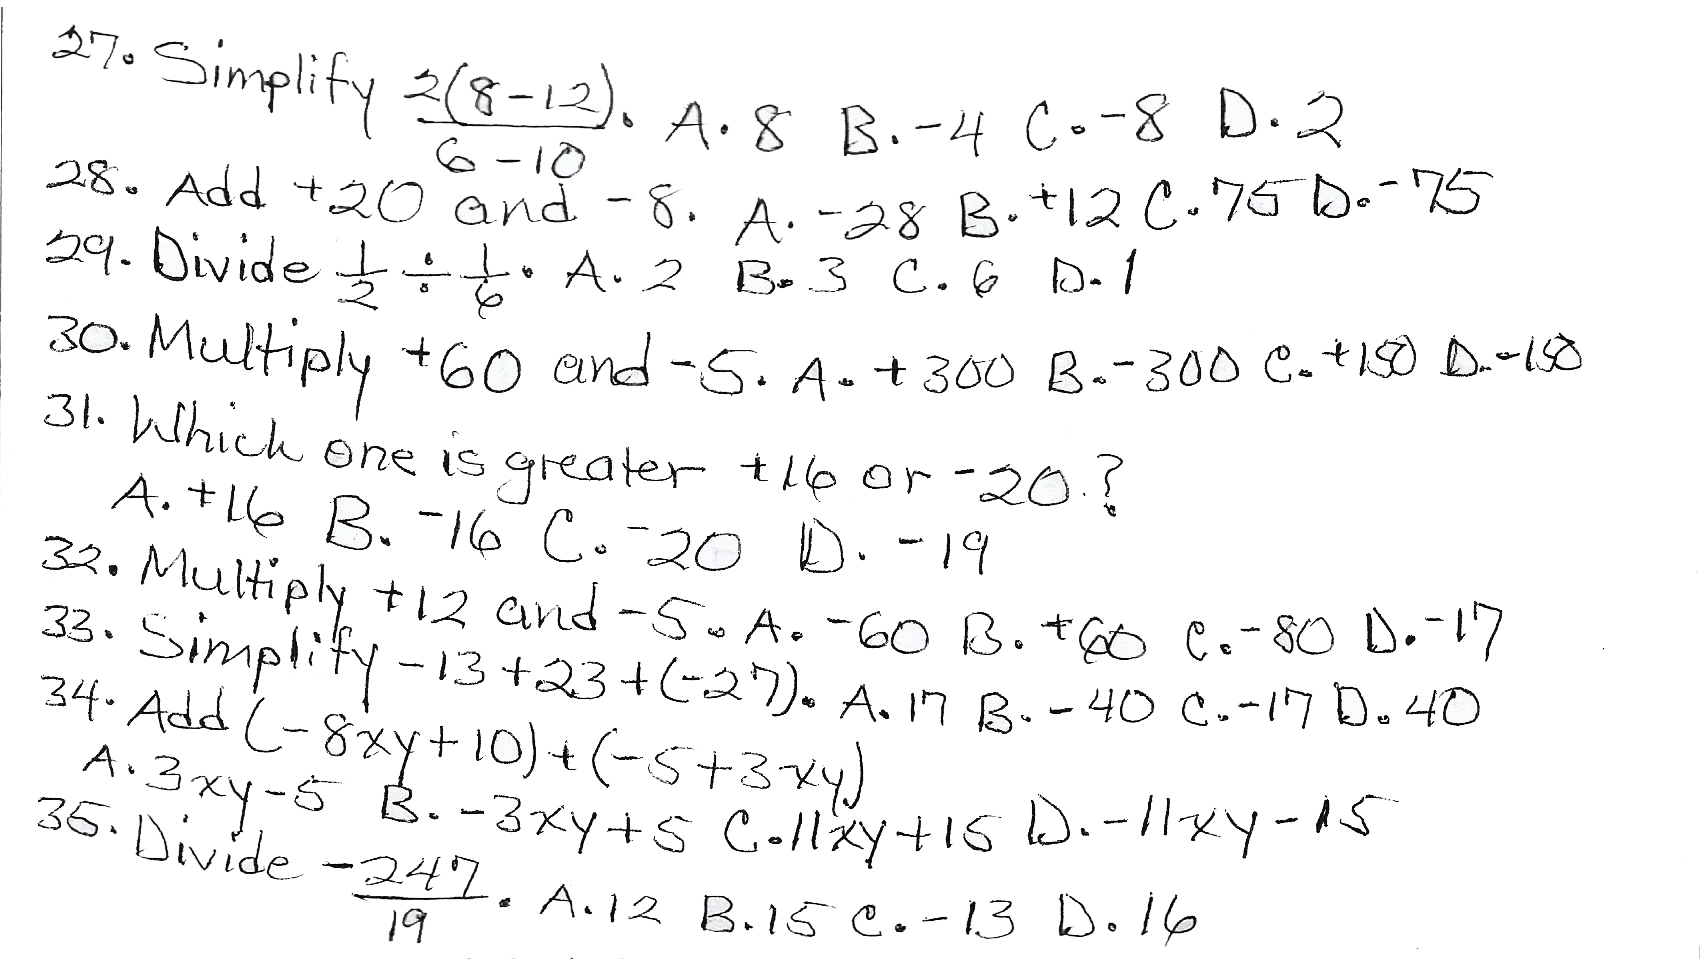 27. Simplify 2(8-12)/6-10. A. 8 B. -4 C. -8 D. 2
28. Add +20 and -8. A. -28 B. +12 C. 75 D. -75
29. Divide 1/2 ÷ 1/6. A. 2 B. 3 C. 6 D. 1
30. Multiply +60 and -5. A. +300 B. -300 C. +150 D. -150
31. Which one is greater +16 or -20?
A. +16 B. -16 C. -20 D. -19
32. Multiply +12 and -5. A. -60 B. +60 C. -80 D. -17
33. Simplify -13+23+(-27). A. 17 B. -40 C. -17 D. 40
34. Add (-8xy+10)+(-5+3xy)
A. 3xy-5 B. -3xy+5 C. 11xy+15 D. -11xy-15
35. Divide -247/19. A. 12 B. 15 C. -13 D. 16